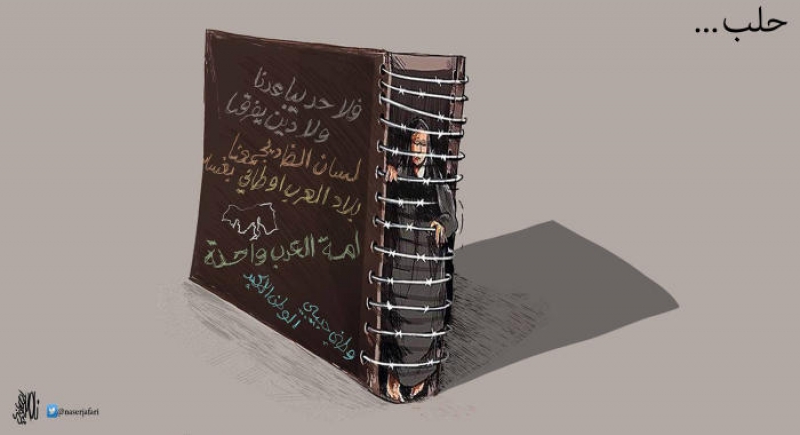 حلب...
فلا حد يباعدنا
ولا دين يفرقنا
لسان الضاد يجمعنا
بلاد العرب اوطاني
امة العرب واحدة
وطني حبيبي
الوطن الاكبر
@naserjafari